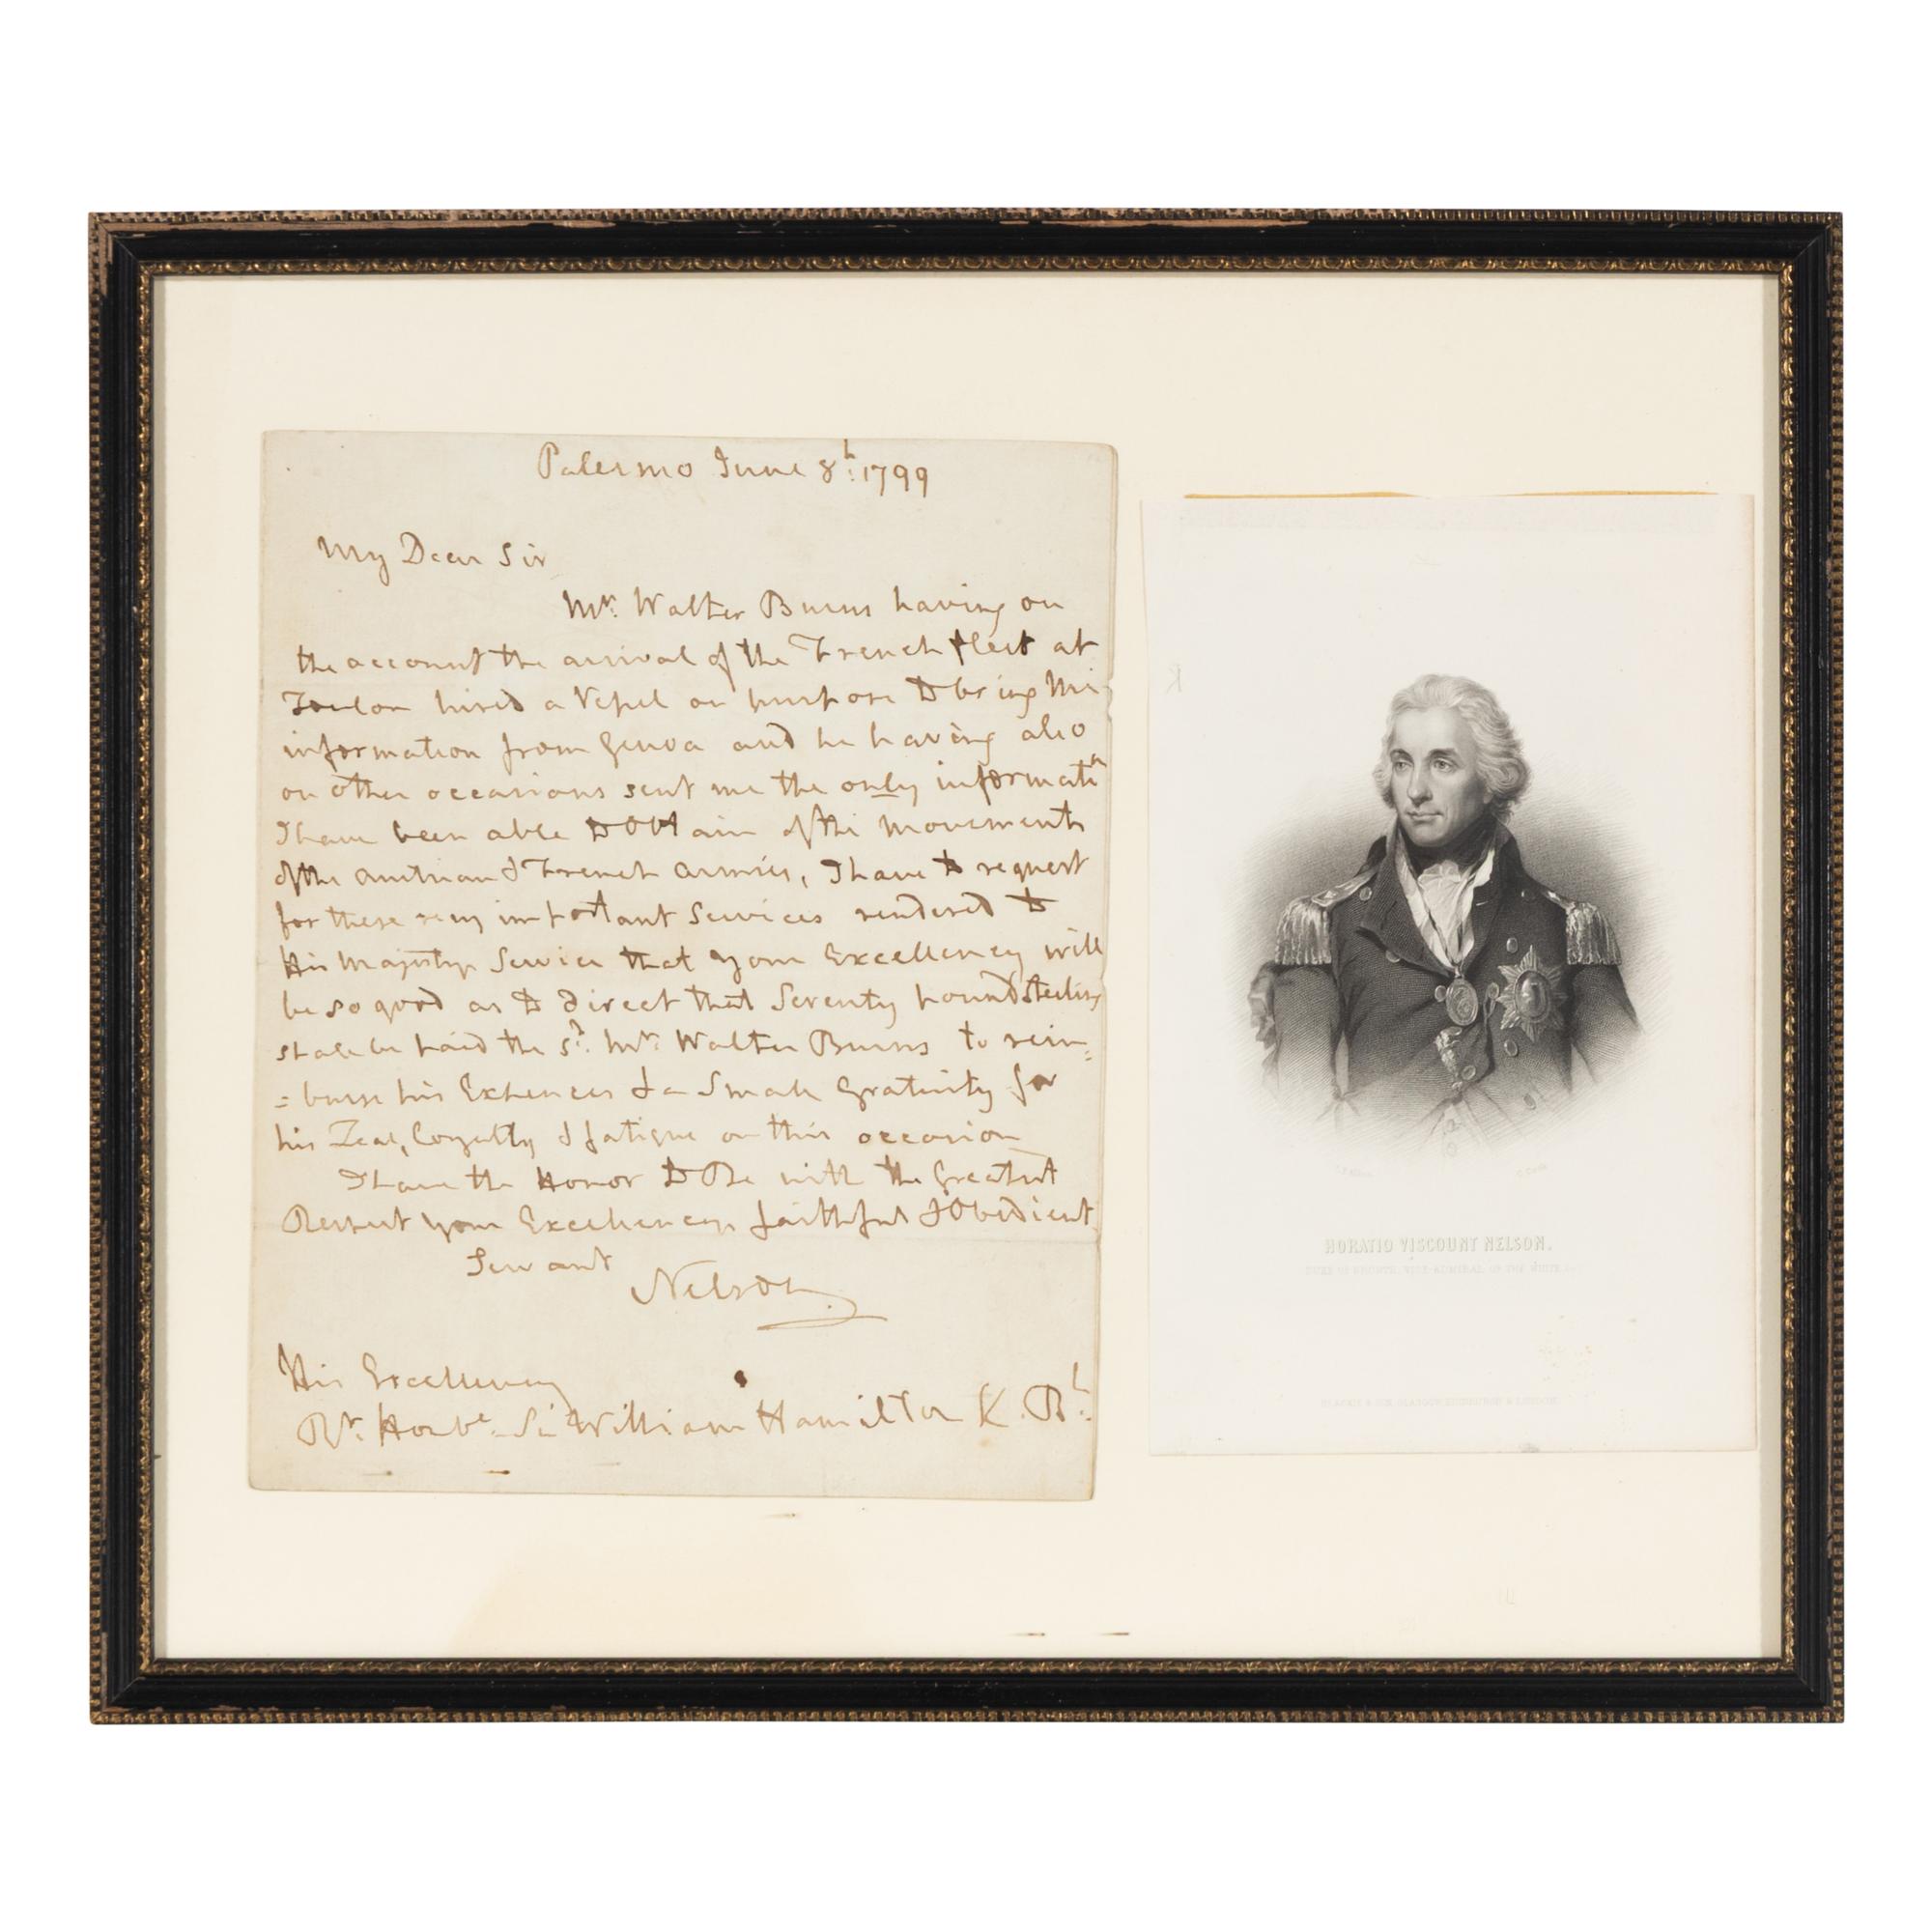 Palermo June 8th: 1799
My Dear Sir
Mr. Walter Burns having on
the account the arrival of the French fleet at
Toulon hired a Vessel on purpose to bring Me
information from Genoa and he having also
on other occasions sent me the only informatin
I have been able to obtain of the movements
of the Austrian & French Armies, I have to request
for these very important Services rendered to
His Majestys Service that your Excellency will
be so good as to direct that Seventy pounds sterling
shall be paid the sd. Mr. Walter Burns to reim=
=burse his Expences & a Small Gratuity for
his Zeal, Loyalty & fatigue on this occasion
I have the Honor to Be with the Greatest
Respect your Excellencys faithful & Obedient
Servant
Nelson
His Excellency
Rt. Honble. Sir William Hamilton K. Bh.
HORATIO VISCOUNT NELSON.
DUKE OF BRONTE, VICE ADMIRAL OF THE WHITE